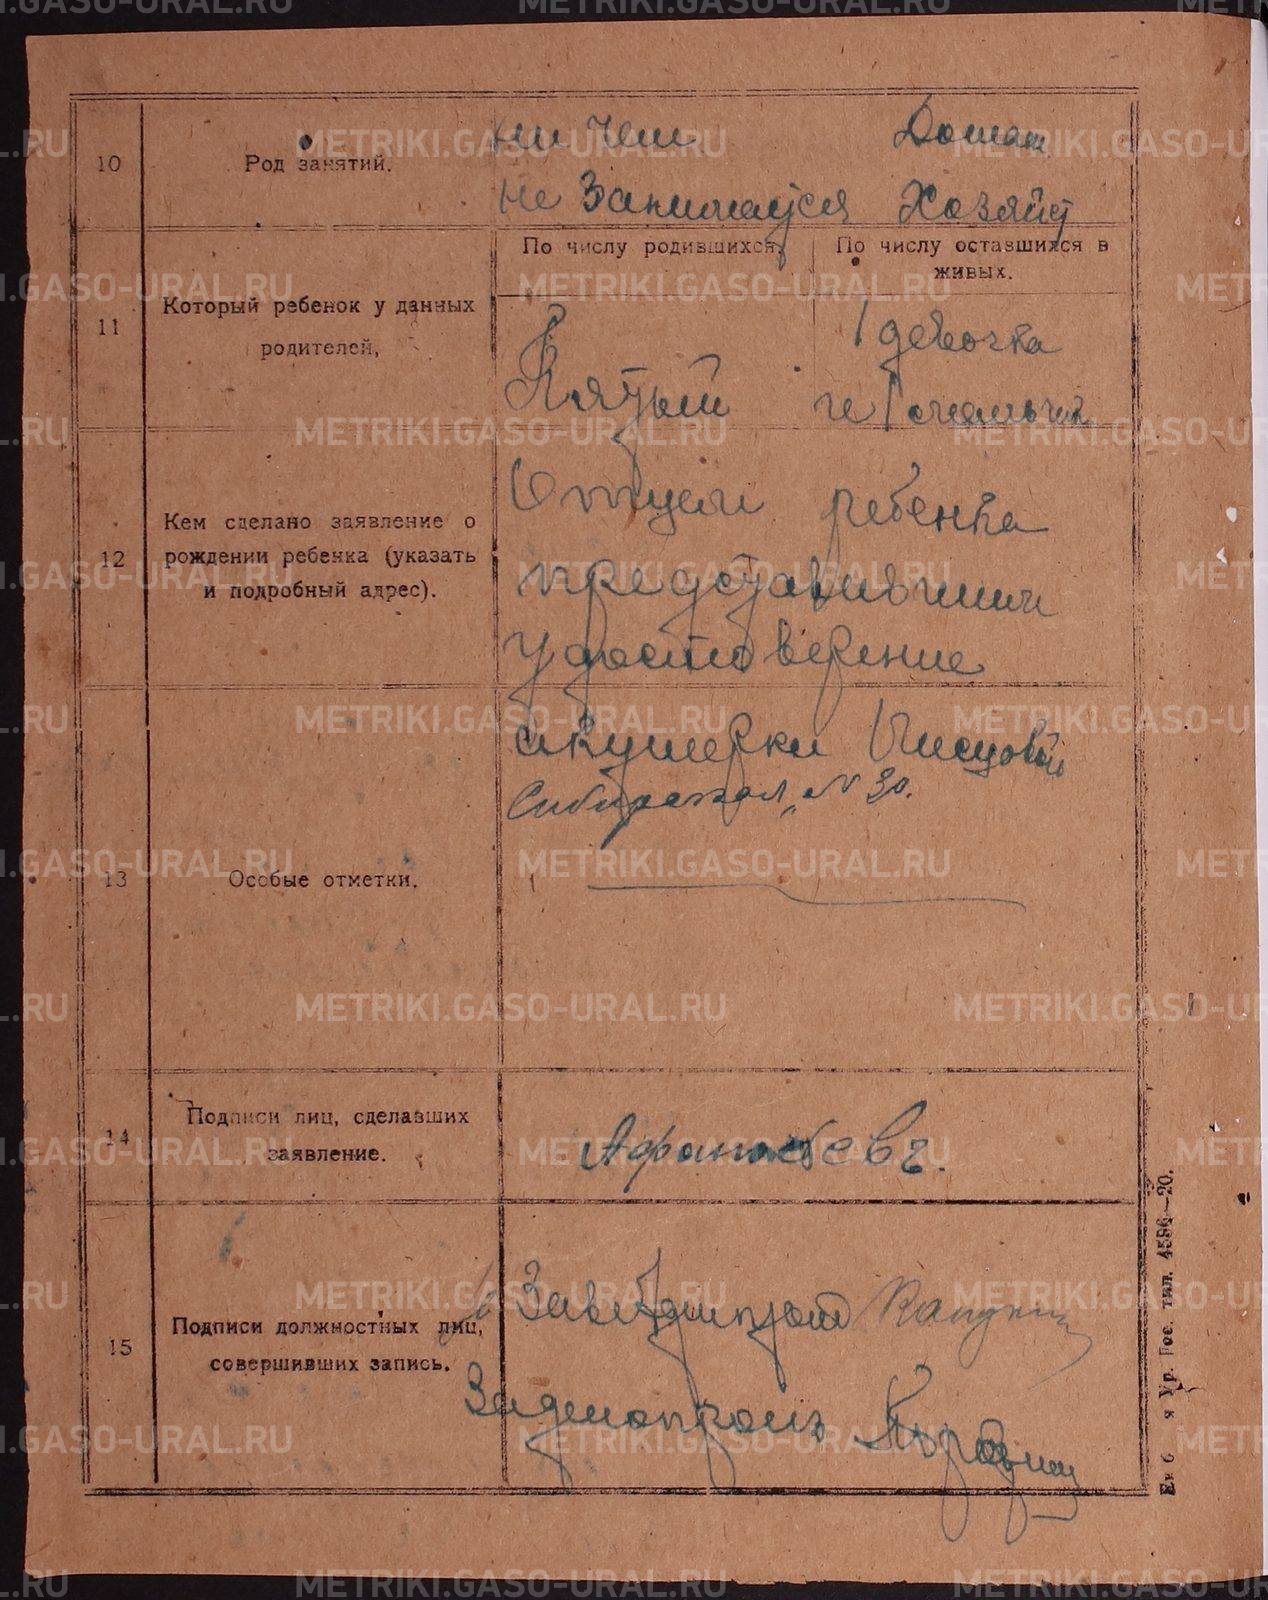 10
Род занятий.
ни чем
не Занимается
Домаш
Хозяйст
11
Который ребенок у данных
родителей,
По числу родившихся,
По числу оставшихся в
живых.
Пятый
1 девочка
и 1 мальчик
12
Кем сделано заявление о
рождении ребенка (указать
и подробный адрес).
Отцем ребенка
представившим
удостоверение
акушерки
Сибирская, N 30.
13
Особые отметки.
14
Подписи лиц, сделавших
заявление.
Афанасьевъ.
15
Подписи должностных лиц,
совершивших запись.
Ур. Гос. тип. 4586—20.
METRIKI.GASO-URAL.RU